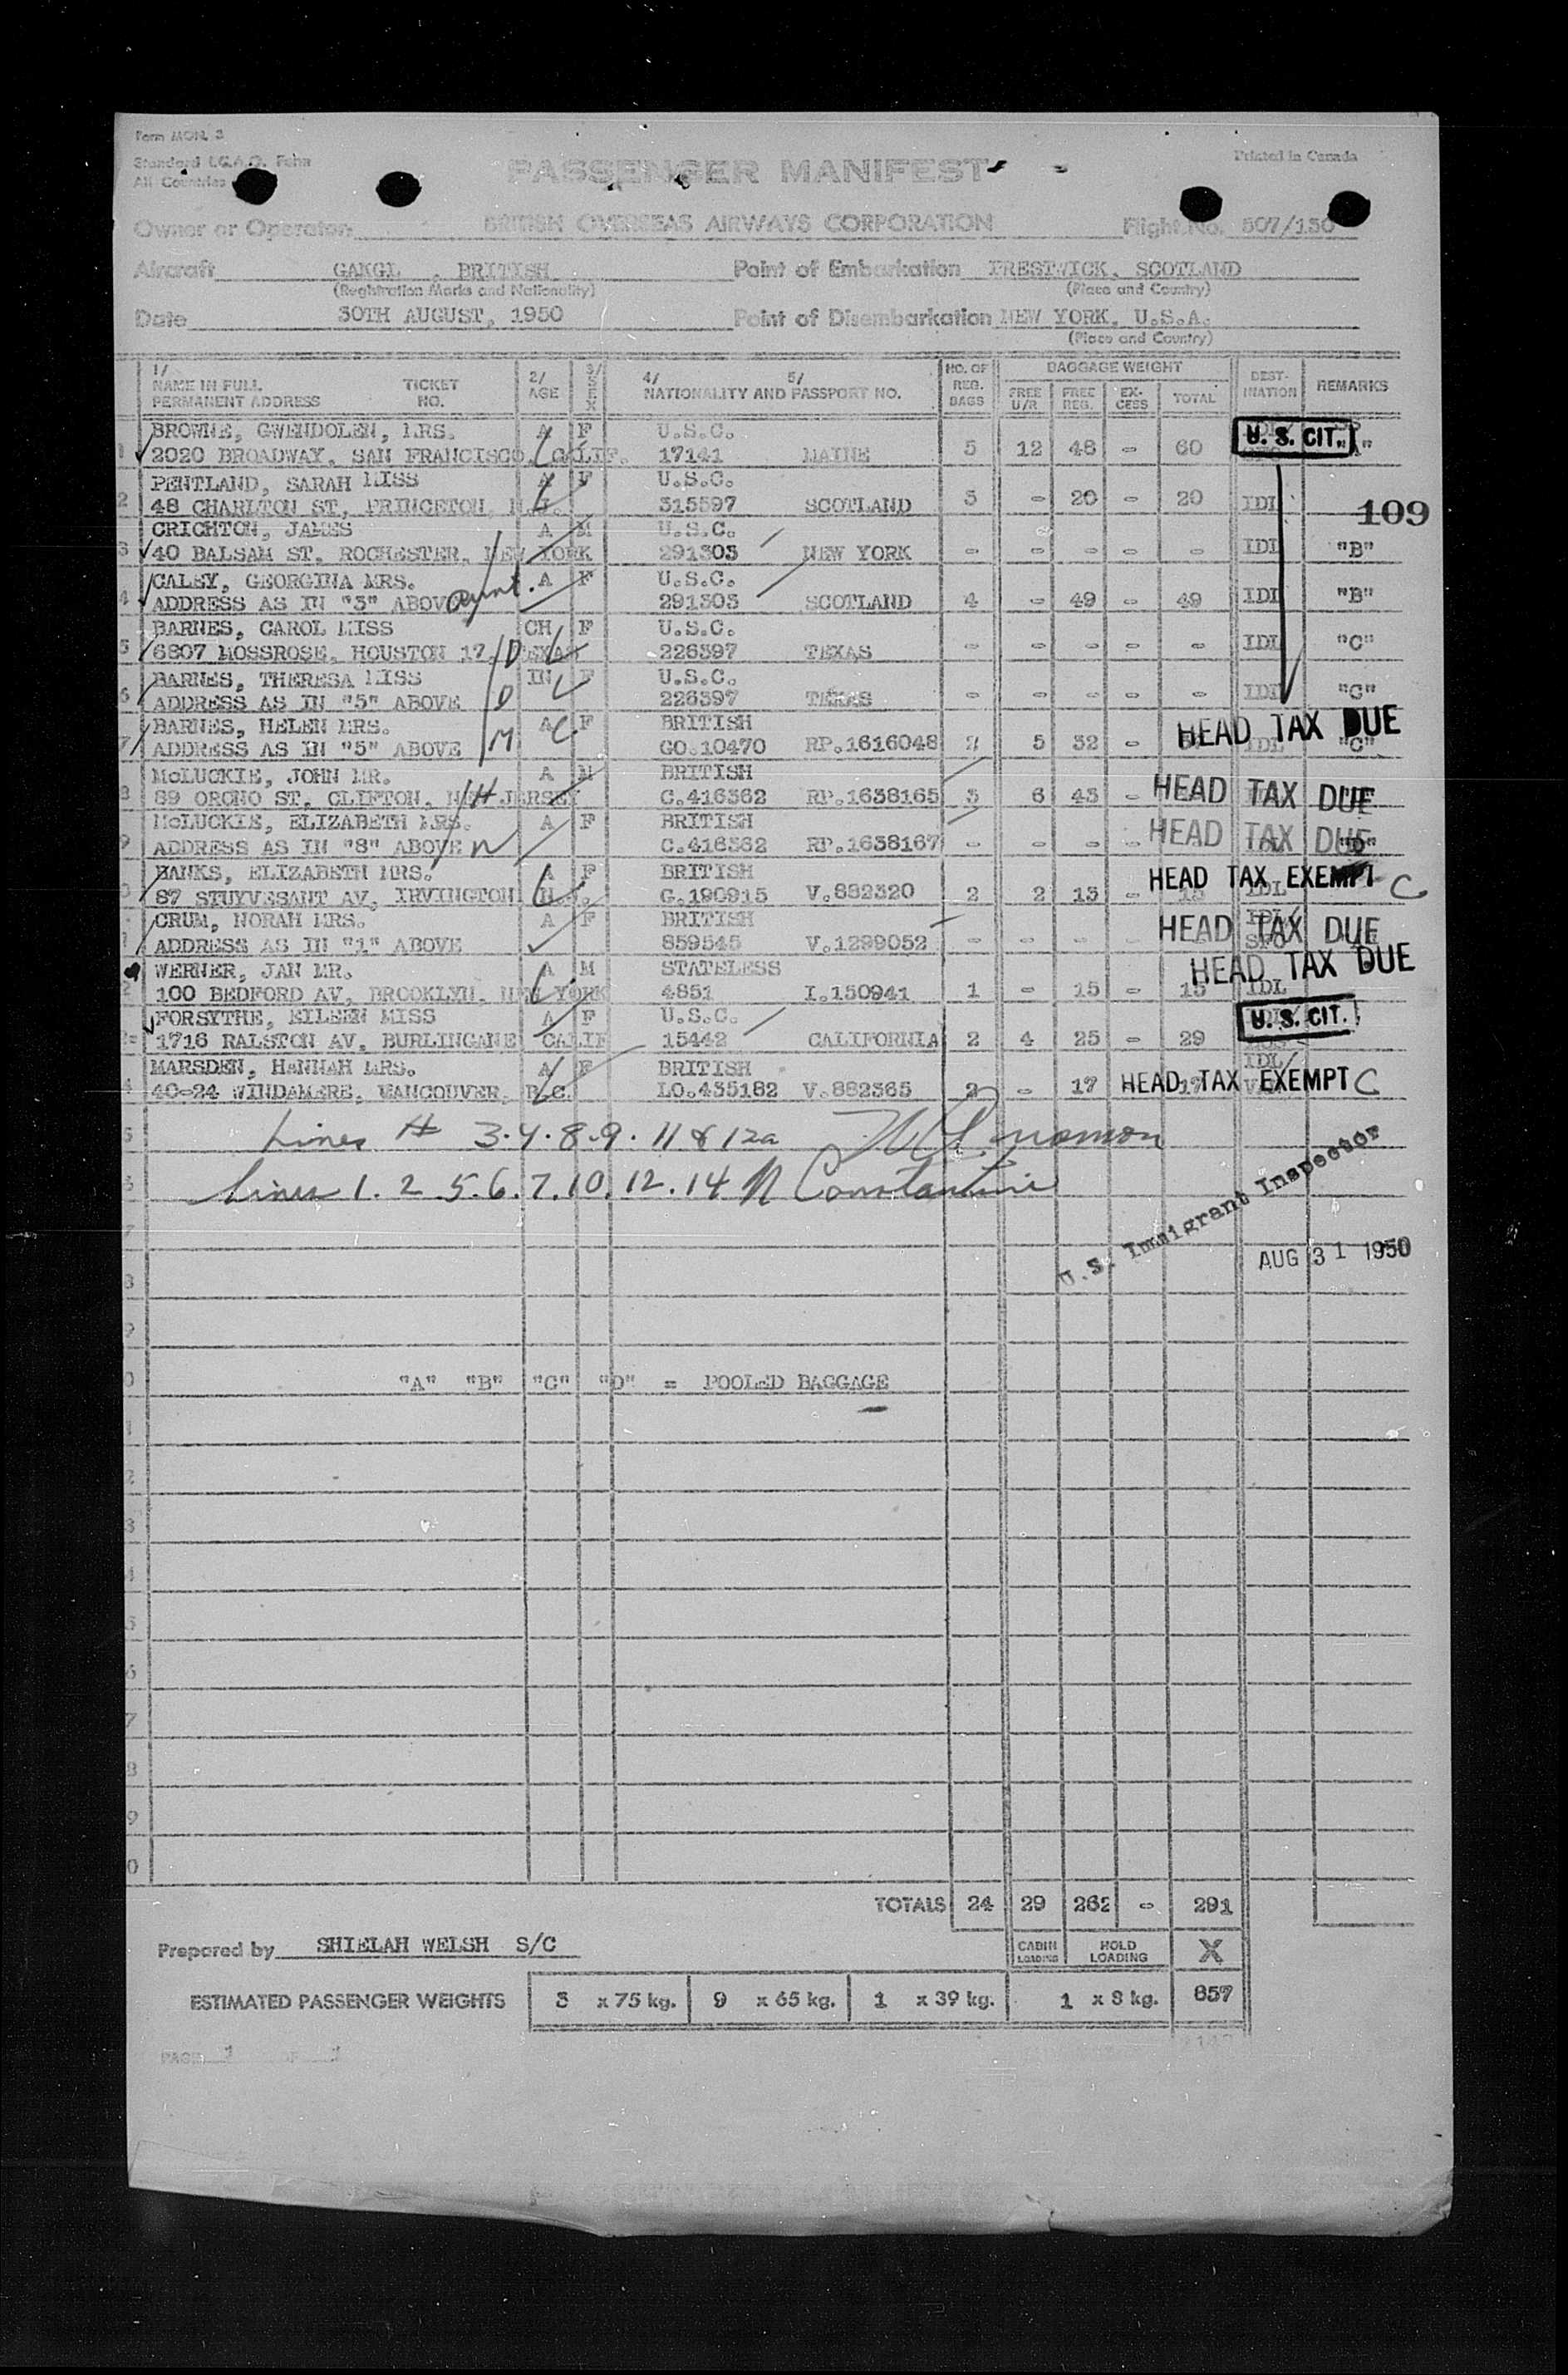 Form MON. 3
Standard I.C.A.O. Form
All Countries
Printed in Canada
PASSENGER MANIFEST
Owner or Operator BRITISH OVERSEAS AIRWAYS CORPORATION Flight No. 507/130
Aircraft GAKGL . BRITISH Point of Embarkation PRESTWICK, SCOTLAND
(Registration Marks and Nationality) (Place and Country)
Date 30TH AUGUST, 1950 Point of Disembarkation NEW YORK, U.S.A.
(Place and Country)
1/ NAME IN FULL PERMANENT ADDRESS TICKET NO. 2/ AGE 3/ SEX 4/ 5/ NATIONALITY AND PASSPORT NO. NO. OF REG. BAGS BAGGAGE WEIGHT FREE U/R FREE REG. EX-CESS TOTAL DEST-INATION REMARKS
BROWNE, GWENDOLEN, MRS. A F U.S.C. U. S. CIT.
1 2020 BROADWAY, SAN FRANCISCO, CALIF. 17141 MAINE 5 12 48 - 60 "A"
PENTLAND, SARAH MISS A F U.S.C.
2 48 CHARLTON ST, PRINCETON, N.J. 315597 SCOTLAND 3 - 20 - 20 IDL 109
CRICHTON, JAMES A M U.S.C.
3 40 BALSAM ST. ROCHESTER, NEW YORK 291303 NEW YORK - - - - - IDL "B"
CALEY, GEORGINA MRS. aunt. A F U.S.C.
4 ADDRESS AS IN "3" ABOVE 291303 SCOTLAND 4 - 49 - 49 IDL "B"
BARNES, CAROL MISS CH F U.S.C.
5 6807 MOSSROSE, HOUSTON 17, D TEXAS 226397 TEXAS - - - - - IDL "C"
BARNES, THERESA MISS IN F U.S.C.
6 ADDRESS AS IN "5" ABOVE D 226397 TEXAS - - - - - IDL "C"
BARNES, HELEN MRS. A F BRITISH HEAD TAX DUE
7 ADDRESS AS IN "5" ABOVE M GO.10470 RP.1616048 5 32 - IDL "C"
McLUCKIE, JOHN MR. A M BRITISH
8 89 ORONO ST, CLIFTON, NEW JERSEY H C.416362 RP.1638165 3 6 43 - HEAD TAX DUE
McLUCKIE, ELIZABETH MRS. A F BRITISH
9 ADDRESS AS IN "8" ABOVE W C.416362 RP.1638167 - - - - HEAD TAX DUE "D"
BANKS, ELIZABETH MRS. A F BRITISH HEAD TAX EXEMPT C
0 87 STUYVESANT AV, IRVINGTON N.J. G.190915 V.882320 2 2 13 - 15 IDL
CRUM, NORAH MRS. A F BRITISH IDL/
1 ADDRESS AS IN "1" ABOVE 859545 V.1299052 - - - - SFO HEAD TAX DUE
WERNER, JAN MR. A M STATELESS HEAD TAX DUE
2 100 BEDFORD AV, BROOKLYN, NEW YORK 4851 I.150941 1 - 15 - 15 IDL
FORSYTHE, EILEEN MISS A F U.S.C. U. S. CIT.
1716 RALSTON AV, BURLINGAME CALIF 15442 CALIFORNIA 2 4 25 - 29
MARSDEN, HANNAH MRS. A F BRITISH IDL/
4 40-24 WINDAMERE, VANCOUVER, B.C. LO.435182 V.882365 2 - 17 17 HEAD TAX EXEMPT C
5 Lines # 3.4.8.9.11 & 12a
Lines 1.2.5.6.7.10.12.14 N Constantine
U.S. Immigrant Inspector
AUG 31 1950
"A" "B" "C" "D" = POOLED BAGGAGE
TOTALS 24 29 262 - 291
Prepared by SHIELAH WELSH S/C CABIN LOADING HOLD LOADING X
ESTIMATED PASSENGER WEIGHTS 3 x 75 kg. 9 x 65 kg. 1 x 39 kg. 1 x 8 kg. 857
PAGE 1 OF 1